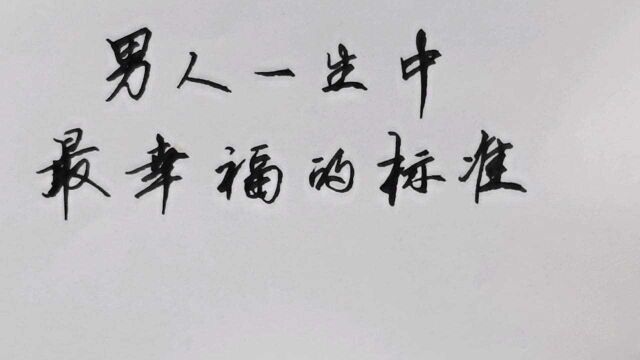 男人一生中
最幸福的标准